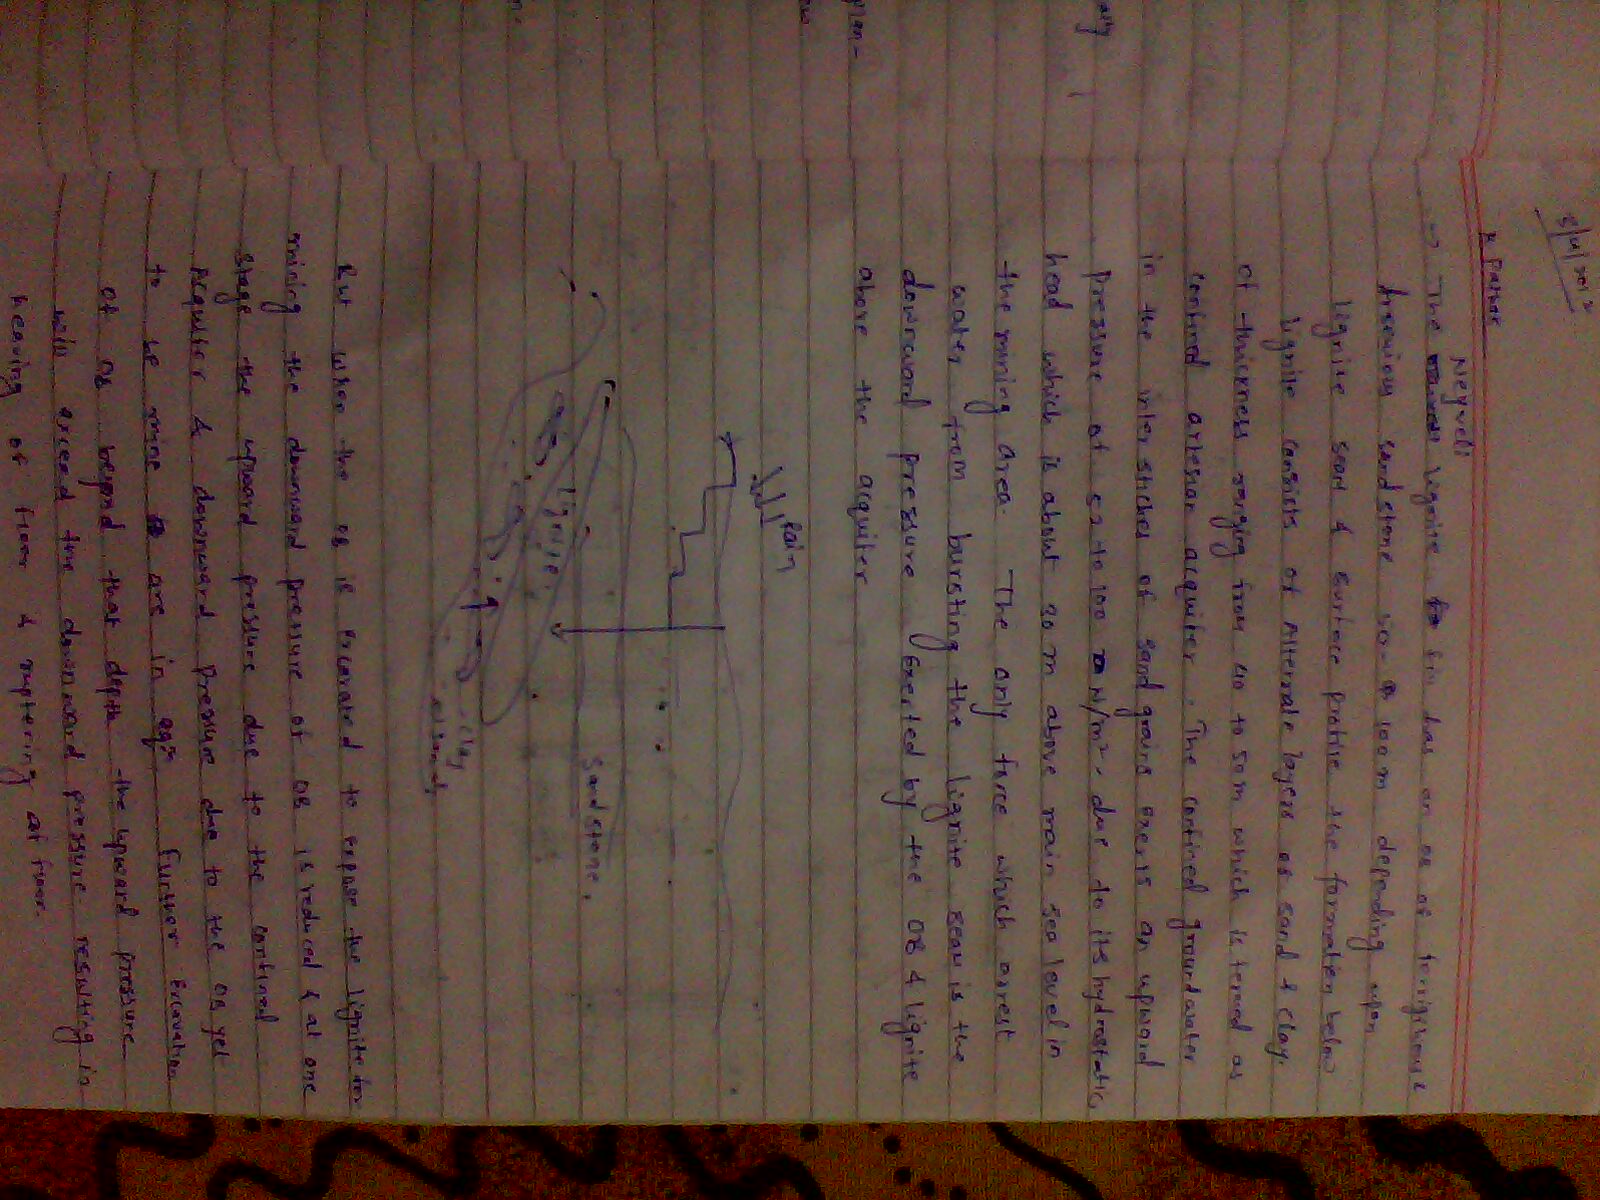 5/4/2012
Neyveli
→ The lignite has an OB of
sandstone 50 - 100m depending upon
lignite seam & surface profile the formation below
lignite consists of Alternate layers of sand & clay.
of thickness ranging from 40 to 50m which is termed as
confined artesian acquiter. The confined groundwater
in the inter stiches of sand grains exerts an upward
Pressure of 50 to 100 N/m². due to its hydrostatic,
head which is about 20 m above main sea level in
the mining area. The only force which arrest
water from bursting the lignite seam is the
downward pressure exerted by the OB & lignite
above the acquiter
Rain
Sandstone,
lignite
clay
sand
But when the OB is excavated to expose the lignite for
mining the downward pressure of OB is reduced & at one
stage the upward pressure due to the confined
acquiter & downward pressure due to the OB yet
to be mine are in eqm further excavation
of OB beyond that depth the upward pressure
will exceed the downward pressure resulting in
heaving of floor & rupturing of floor.